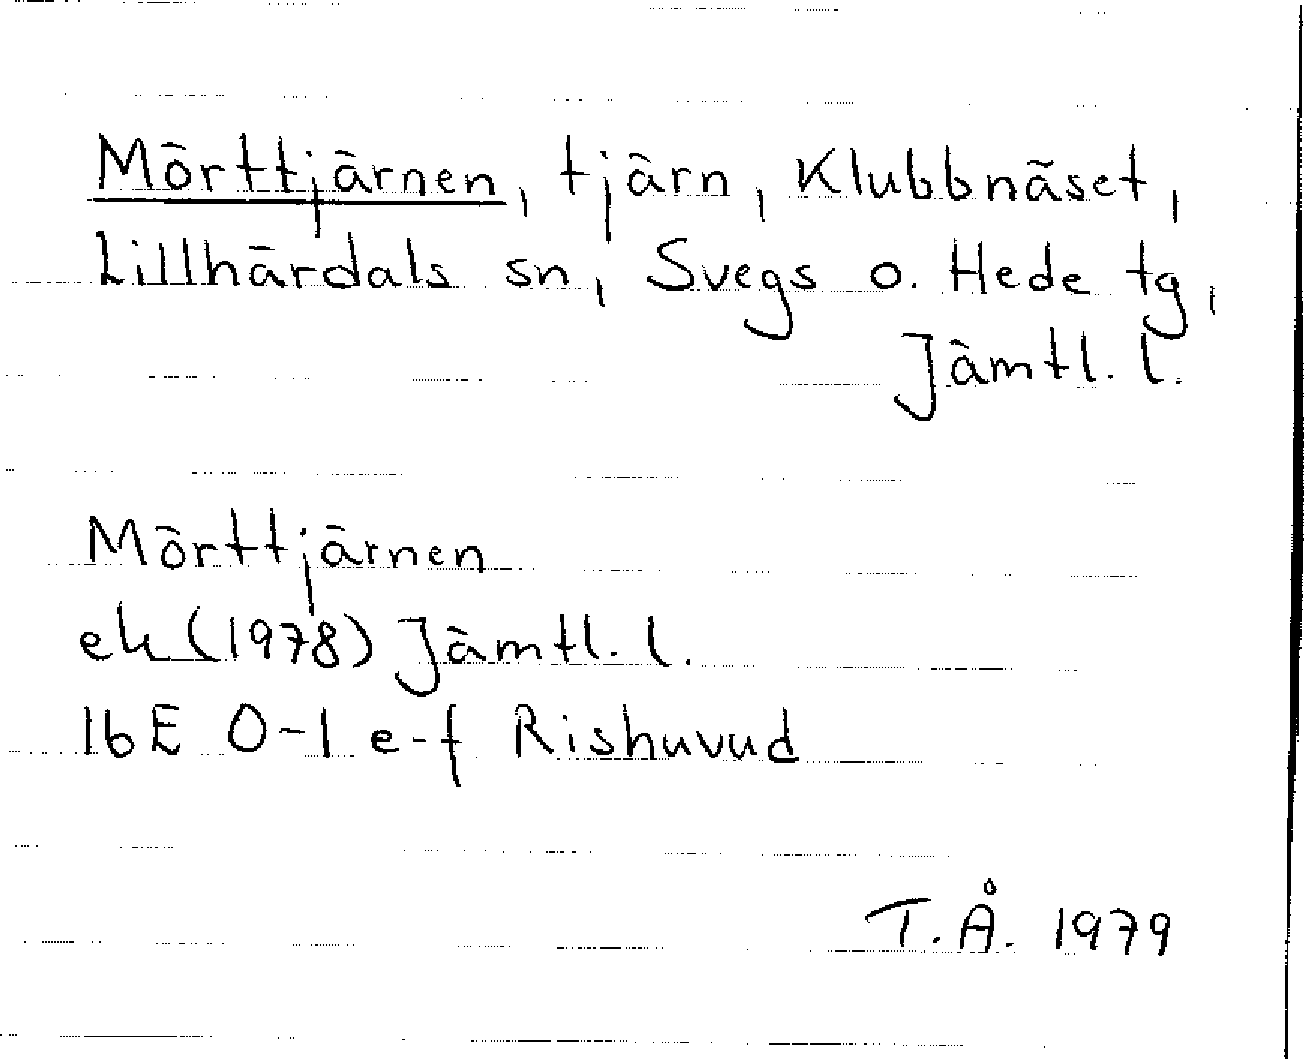 Mörttjärnen, tjärn, Klubbnäset,
Lillhärdals sn, Svegs o. Hede tg,
Jämtl. l.
Mörttjärnen
ek (1978) Jämtl. l.
16E 0-1 e-f Rishuvud
T.Å. 1979